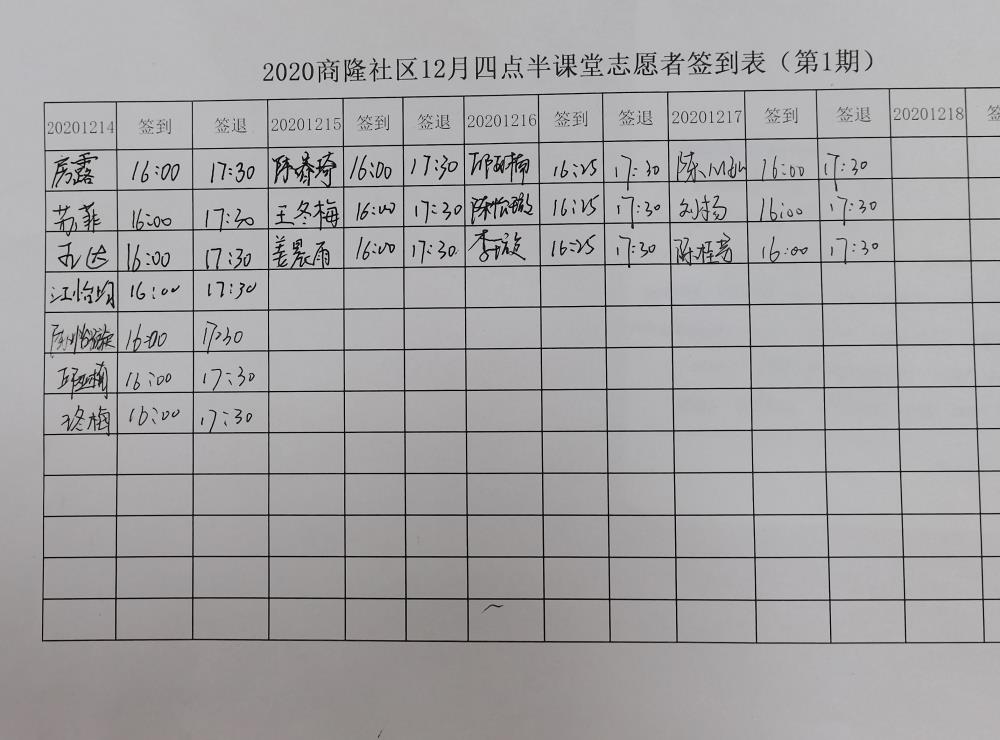 2020商隆社区12月四点半课堂志愿者签到表（第1期）
20201214 签到 签退 20201215 签到 签退 20201216 签到 签退 20201217 签到 签退 20201218
房露 16:00 17:30 陈春琦 16:00 17:30 邱丽楠 16:25 17:30 陈 16:00 17:30
苏菲 16:00 17:30 王冬梅 16:00 17:30 陈怡璇 16:25 17:30 刘扬 16:00 17:30
16:00 17:30 姜晨雨 16:00 17:30 李璇 16:25 17:30 陈桂芳 16:00 17:30
江怡均 16:00 17:30
陈怡璇 16:00 17:30
16:00 17:30
王冬梅 16:00 17:30